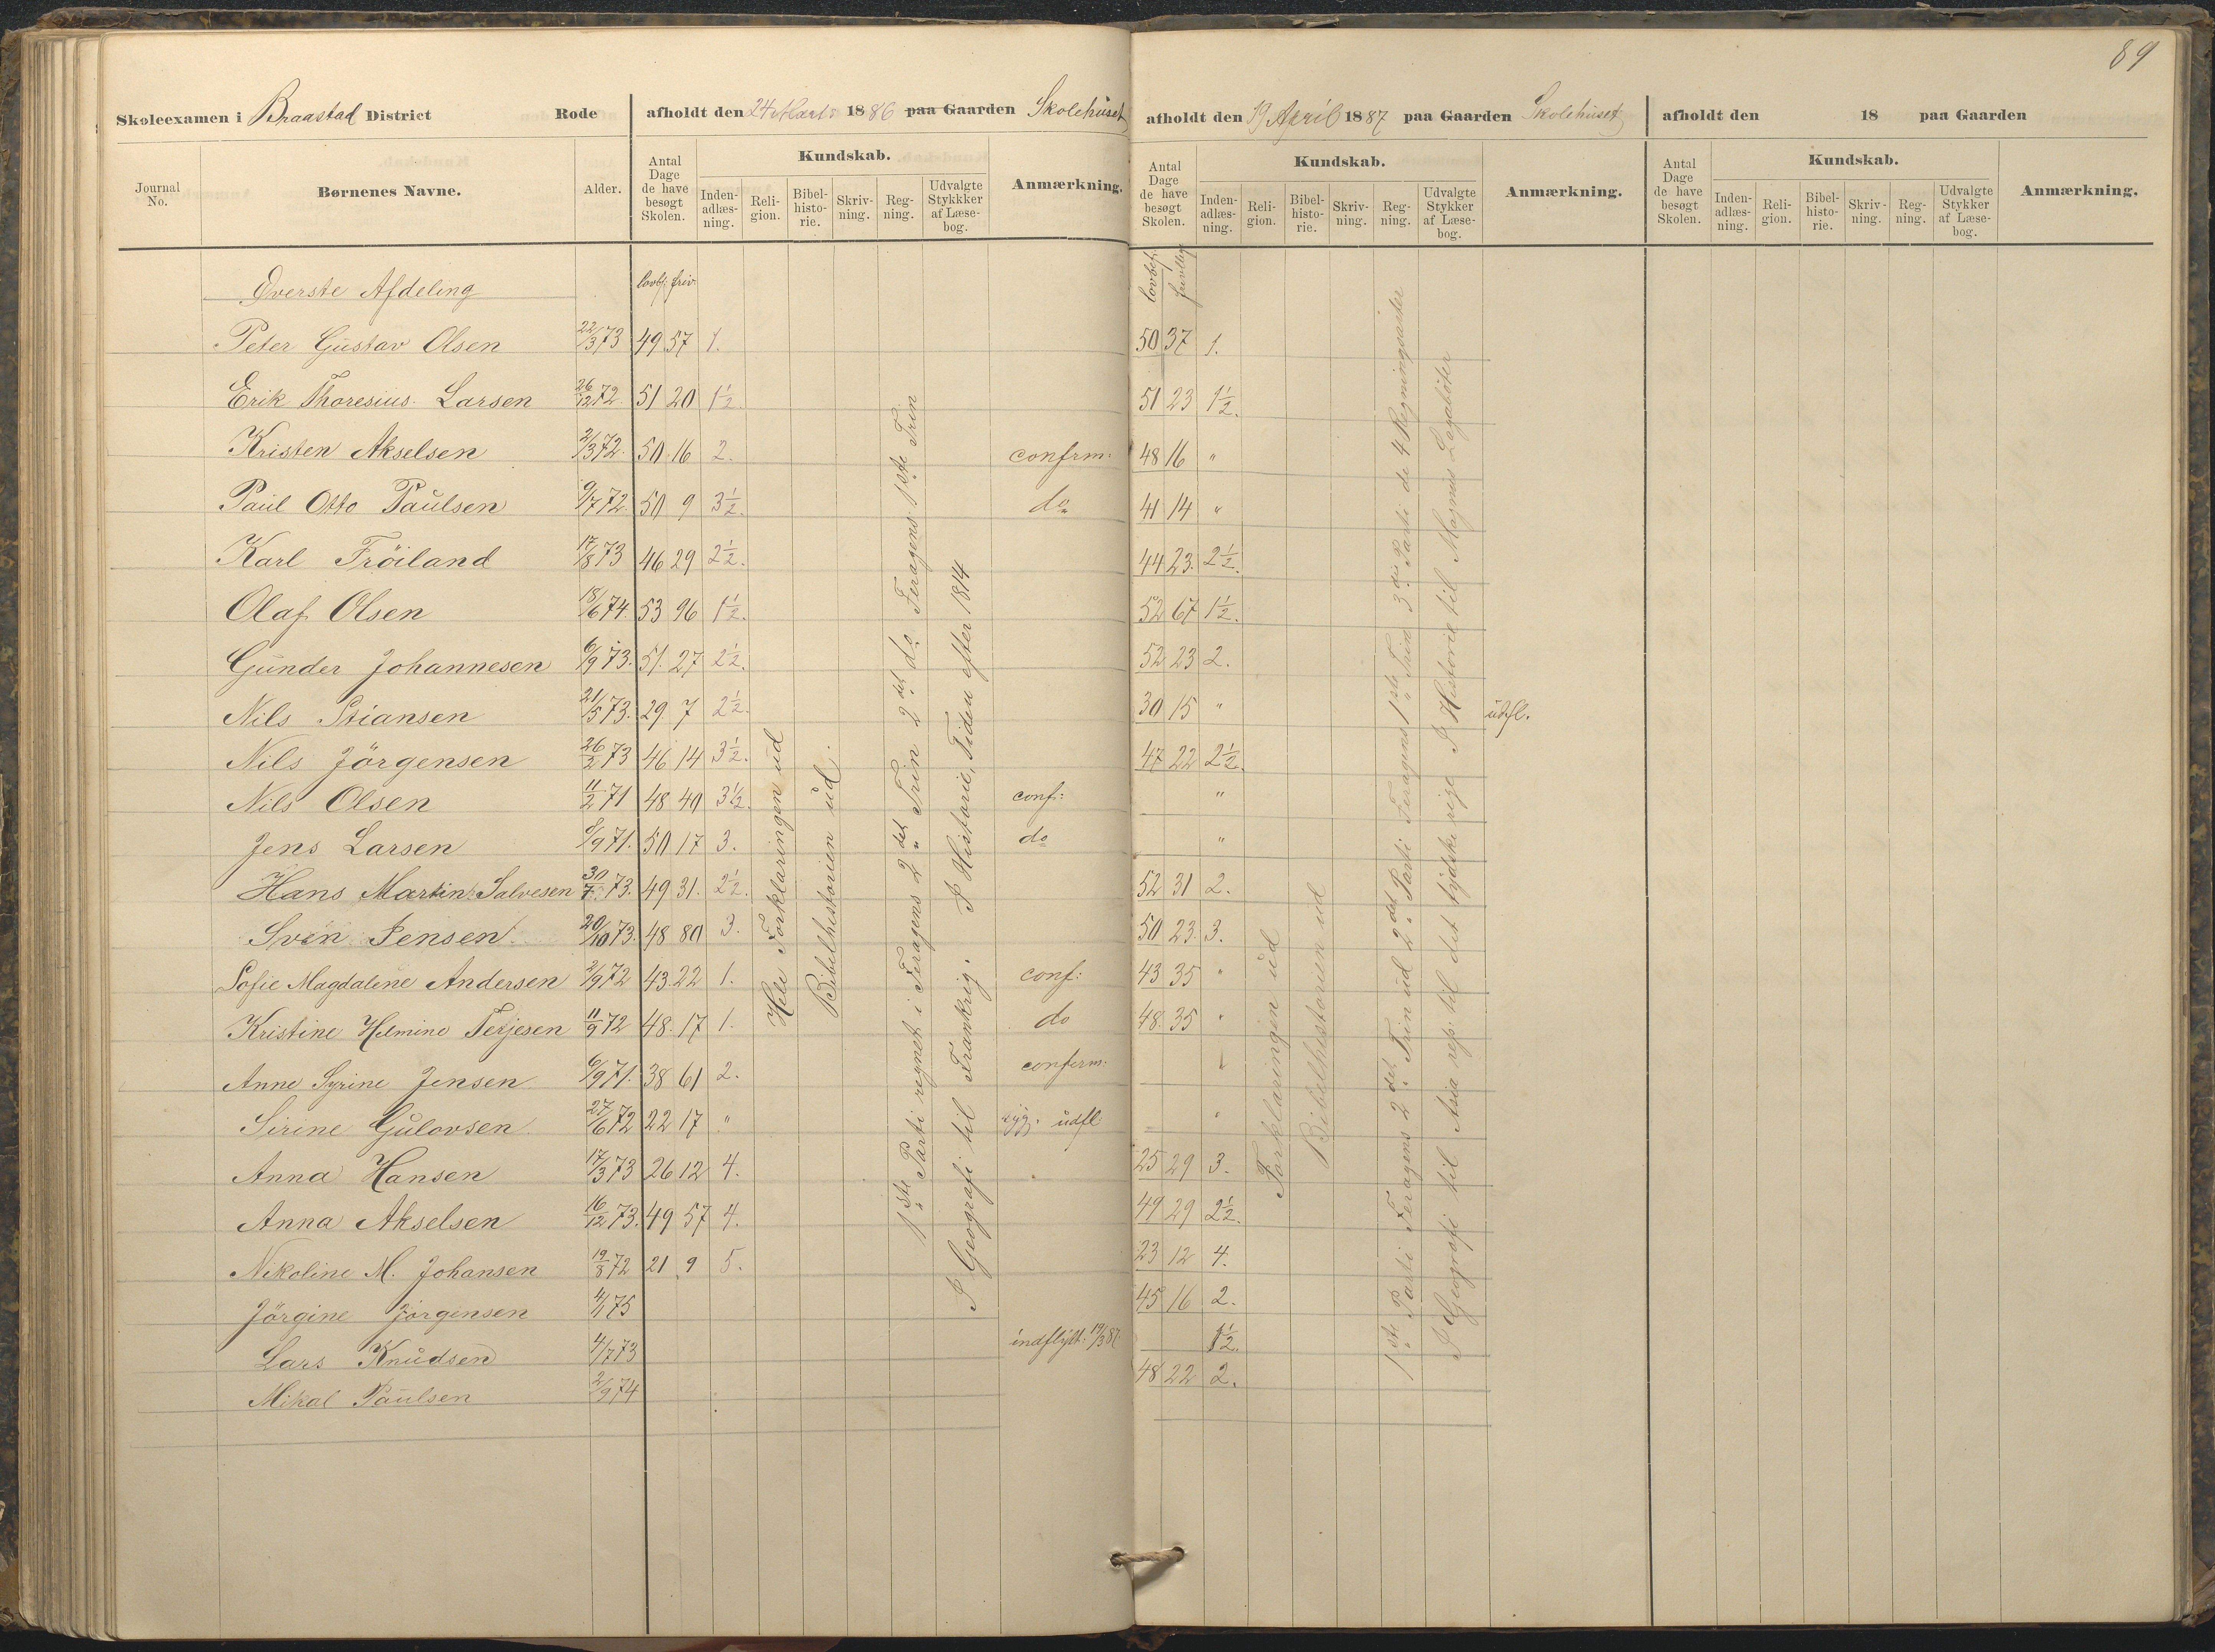 89
Skoleexamen i Braastad District Rode afholdt den 24 Marts 1886 paa Gaarden Skolehuset afholdt den 19 April 1887 paa Gaarden Skolehuset afholdt den 18 paa Gaarden
Journal No. Børnenes Navne. Alder. Antal Dage de have besøgt Skolen. Kundskab. Inden-adlæs-ning. Reli-gion. Bibel-histo-rie. Skriv-ning. Reg-ning. Udvalgte Stykkker af Læse-bog. Anmærkning.
Antal Dage de have besøgt Skolen. Kundskab. Inden-adlæs-ning. Reli-gion. Bibel-histo-rie. Skriv-ning. Reg-ning. Udvalgte Stykker af Læse-bog. Anmærkning.
Antal Dage de have besøgt Skolen. Kundskab. Inden-adlæs-ning. Reli-gion. Bibel-histo-rie. Skriv-ning. Reg-ning. Udvalgte Stykker af Læse-bog. Anmærkning.
Øverste Afdeling lovbf: friv. lovbef.
Peter Gustav Olsen 22/3 73 49 57 1. 50 37 1.
Erik Thoresius Larsen 26/12 72. 51 20 1½. 51 23 1½.
Kristen Akselsen 2/3 72. 50 16 2. confrm: 48 16 "
Paul Otto Paulsen 9/7 72. 50 9 3½. do 41 14 "
Karl Fröiland 17/8 73 46 29 2½. 44 23. 2½.
Olaf Olsen 18/6 74. 53 96 1½. 52 67 1½.
Gunder Johannesen 6/9 73. 51. 27 2½. 52 23 2.
Nils Stiansen 21/5 73. 29 7 2½. 30 15 " udfl.
Nils Jörgensen 26/2 73 46 14 3½. 47 22 2½.
Nils Olsen 11/2 71 48 40 3½. conf: "
Jens Larsen 8/9 71. 50 17 3. do "
Hans Martin Salvesen 30/7 73. 49 31. 2½. 52 31 2.
Sven Jensen 20/10 73. 48 80 3. 50 23. 3.
Sofie Magdalene Andersen 2/9 72 43. 22 1. conf: 43 35 "
Kristine Helmine Terjesen 11/9 72 48. 17 1. do 48. 35 "
Anne Syrine Jensen 6/9 71. 38 61 2. conferm.
Sirine Gulovsen 27/6 72 22 17 " syg. udfl. "
Anna Hansen 17/3 73 26 12 4. 25 29 3.
Anna Akselsen 16/12 73. 49 57 4. 49 29 2½.
Nikoline M. Johansen 19/8 72 21 9 5. 23 12 4.
Jörgine Jörgensen 4/1 75 45 16 2.
Lars Knudsen 4/7 73 indflytt: 19/3 87. 1½.
Mikal Paulsen 2/9 74 48 22 2.
Hele Forklaringen ud
Bibelhistorien ud.
1ste Parti regnet i Feragens 2det Trin 2det do. Feragens 1ste Trin
I Geografi til Frankrig. I Historie, Tiden efter 1814
Forklaringen ud
Bibelhistorien ud
1ste Parti Feragens 2det Trin ud 2det Parti Feragens 1ste Trin 3die Parti de 4 Regningsarter
I Geografi til Asia rep: til det tydske rige I Historie til Magnus Lagaböter